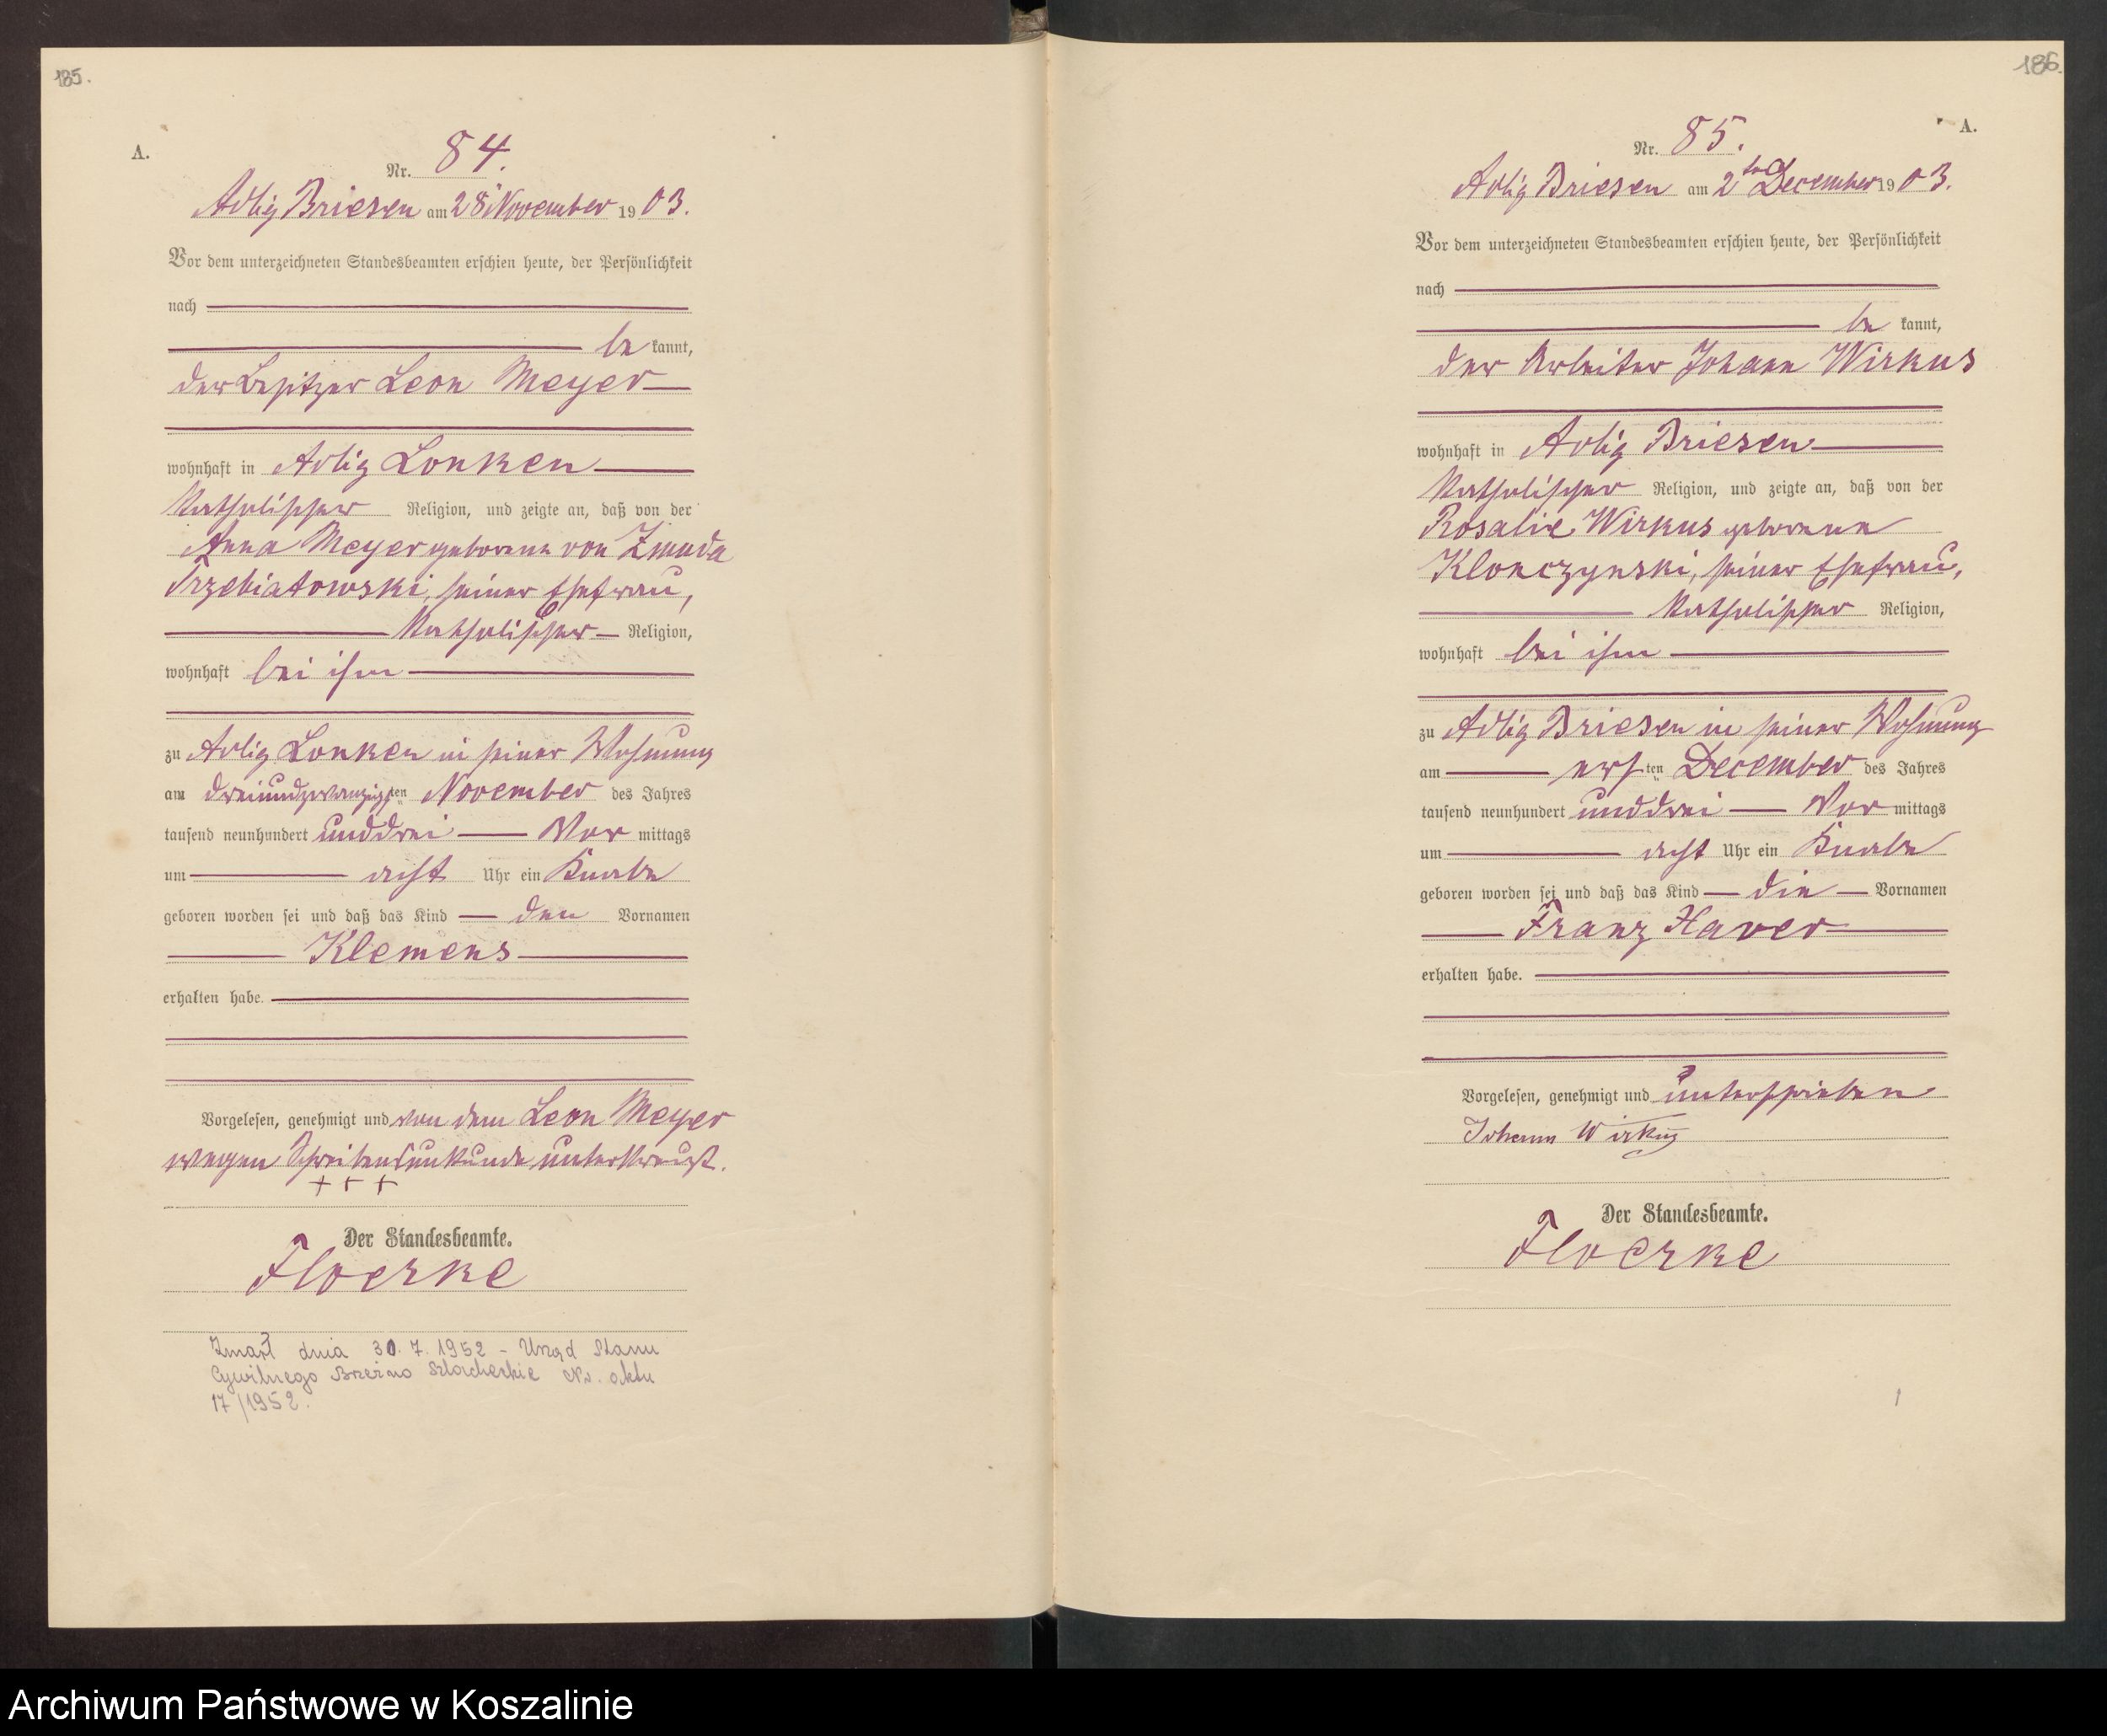 185.
A.
Nr. 84.
Adlig Briesen am 28 November 1903.
Vor dem unterzeichneten Standesbeamten erschien heute, der Persönlichkeit
nach
be kannt,
der Besitzer Leon Meyer
wohnhaft in Adlig Lonken
katholischer Religion, und zeigte an, daß von der
Anna Meyer geborene von Zmuda
Trzebiatowski, seiner Ehefrau,
katholischer Religion,
wohnhaft bei ihm
zu Adlig Lonken in seiner Wohnung
am dreiundzwanzigsten November des Jahres
tausend neunhundert unddrei Vor mittags
um acht Uhr ein Knabe
geboren worden sei und daß das Kind den Vornamen
Klemens
erhalten habe.
Vorgelesen, genehmigt und von dem Leon Meyer
wegen Schreibensunkunde unterkreuzt.
+ + +
Der Standesbeamte.
Floerke
Zmarł dnia 30.7.1952 - Urząd Stanu
Cywilnego Brzeźno Szlacheckie Nr. aktu
17/1952.
186.
A.
Nr. 85.
Adlig Briesen am 2ten December 1903.
Vor dem unterzeichneten Standesbeamten erschien heute, der Persönlichkeit
nach
be kannt,
der Arbeiter Johann Wirkus
wohnhaft in Adlig Briesen
katholischer Religion, und zeigte an, daß von der
Rosalie Wirkus geborene
Klonczynski, seiner Ehefrau,
katholischer Religion,
wohnhaft bei ihm
zu Adlig Briesen in seiner Wohnung
am ersten December des Jahres
tausend neunhundert unddrei Vor mittags
um acht Uhr ein Knabe
geboren worden sei und daß das Kind die Vornamen
Franz Xaver
erhalten habe.
Vorgelesen, genehmigt und unterschrieben
Johann Wirkus
Der Standesbeamte.
Floerke
Archiwum Państwowe w Koszalinie